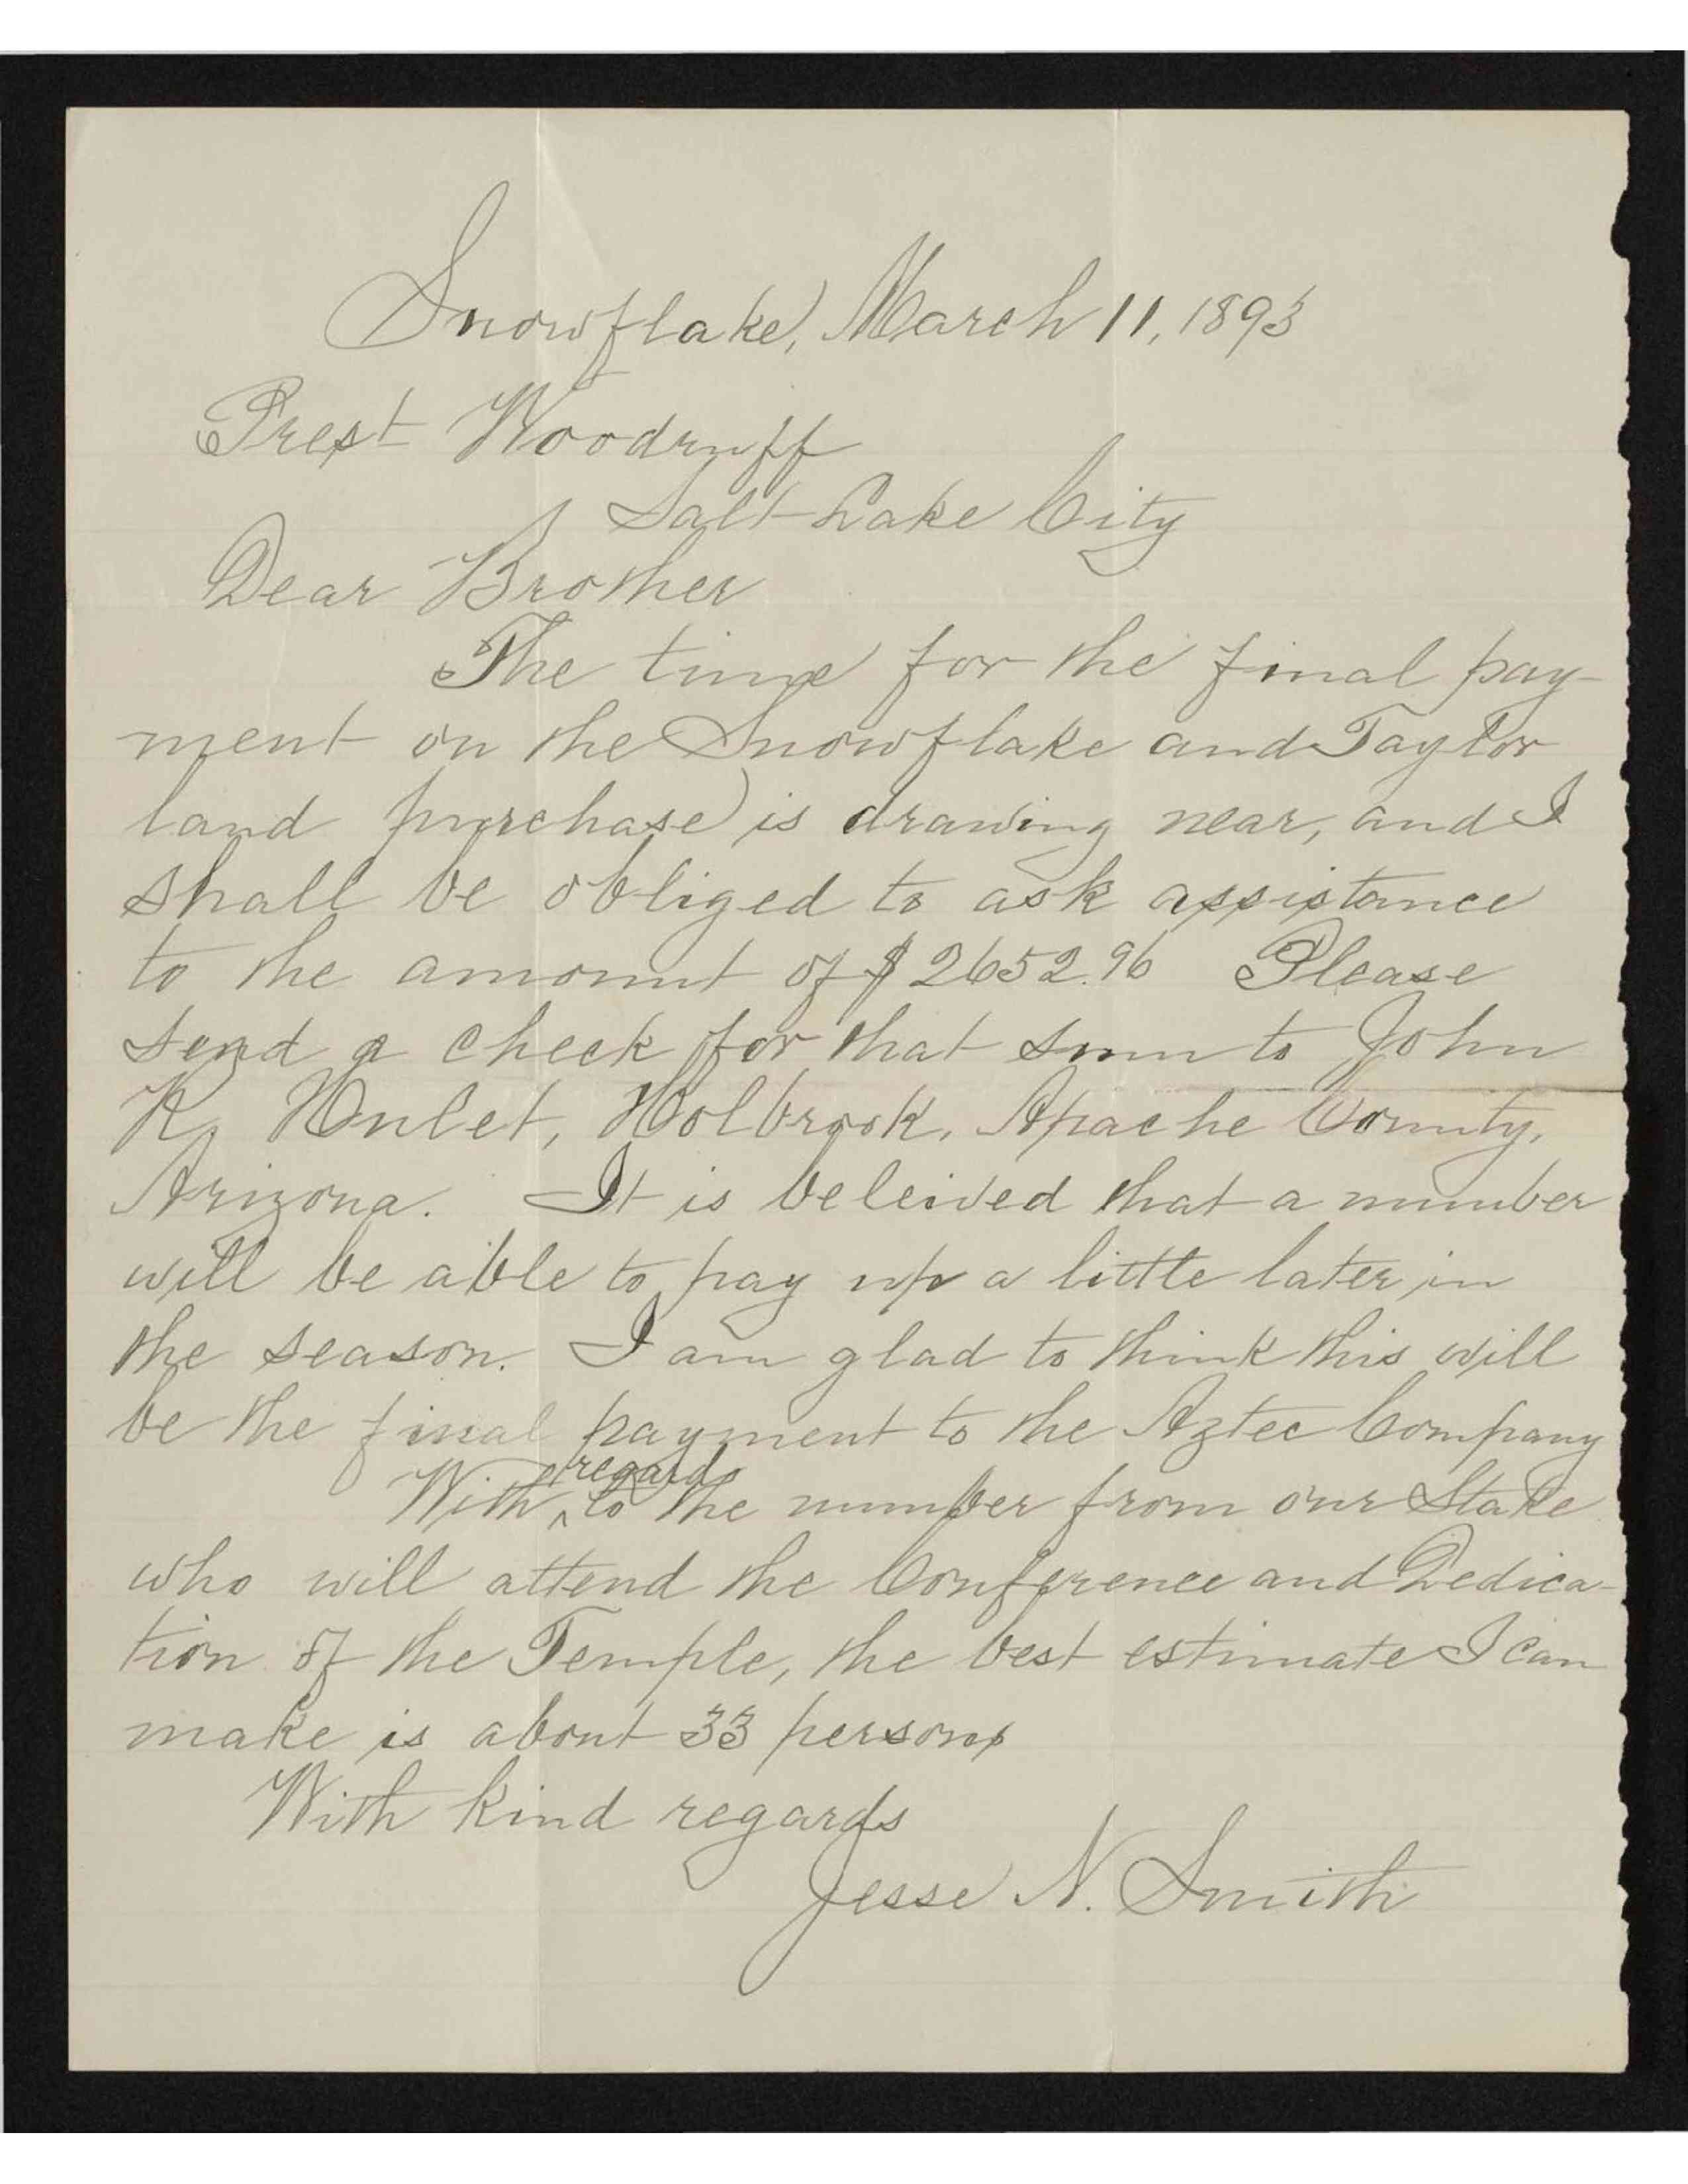 Snowflake, March 11, 1893
Prest Woodruff
Salt Lake City
Dear Brother
The time for the final pay-
ment on the Snowflake and Taylor
land purchase is drawing near, and I
shall be obliged to ask assistance
to the amount of $2652.96 Please
send a check for that sum to John
R. Hulet, Holbrook, Apache County,
Arizona. It is beleived that a number
will be able to pay up a little later in
the season. I am glad to think this will
be the final payment to the Aztec Company
With ^regard to the number from our Stake
who will attend the Conference and Dedica-
tion of the Temple, the best estimate I can
make is about 33 persons
With kind regards
Jesse N. Smith